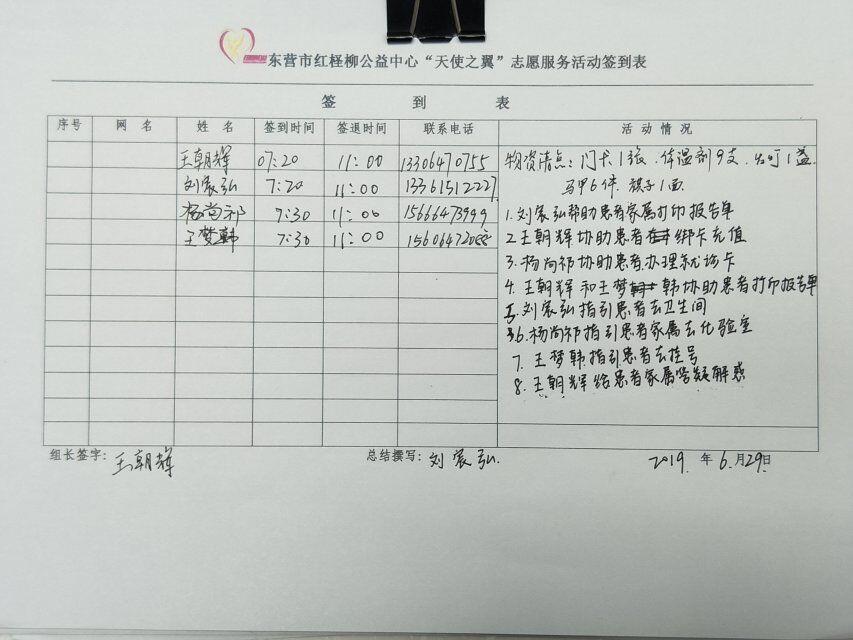 东营市红柽柳公益中心“天使之翼”志愿服务活动签到表
签 到 表
序号 网 名 姓 名 签到时间 签退时间 联系电话 活 动 情 况
王朝辉 07:20 11:00 13306470755 物资清点:门卡1张.体温剂9支.
刘宸弘 7:20 11:00 13361512227 马甲6件 旗子1面.
杨尚祁 7:30 11:00 15666473999 1.刘宸弘帮助患者家属打印报告单
王梦韩 7:30 11:00 15606472088 2.王朝辉协助患者绑卡充值
3.杨尚祁协助患者办理就诊卡
4.王朝辉和王梦韩协助患者打印报告单
5.刘宸弘指引患者去卫生间
6.杨尚祁指引患者家属去化验室
7.王梦韩指引患者去挂号
8.王朝辉给患者家属答疑解惑
组长签字:王朝辉 总结撰写:刘宸弘. 2019.年6.月29日